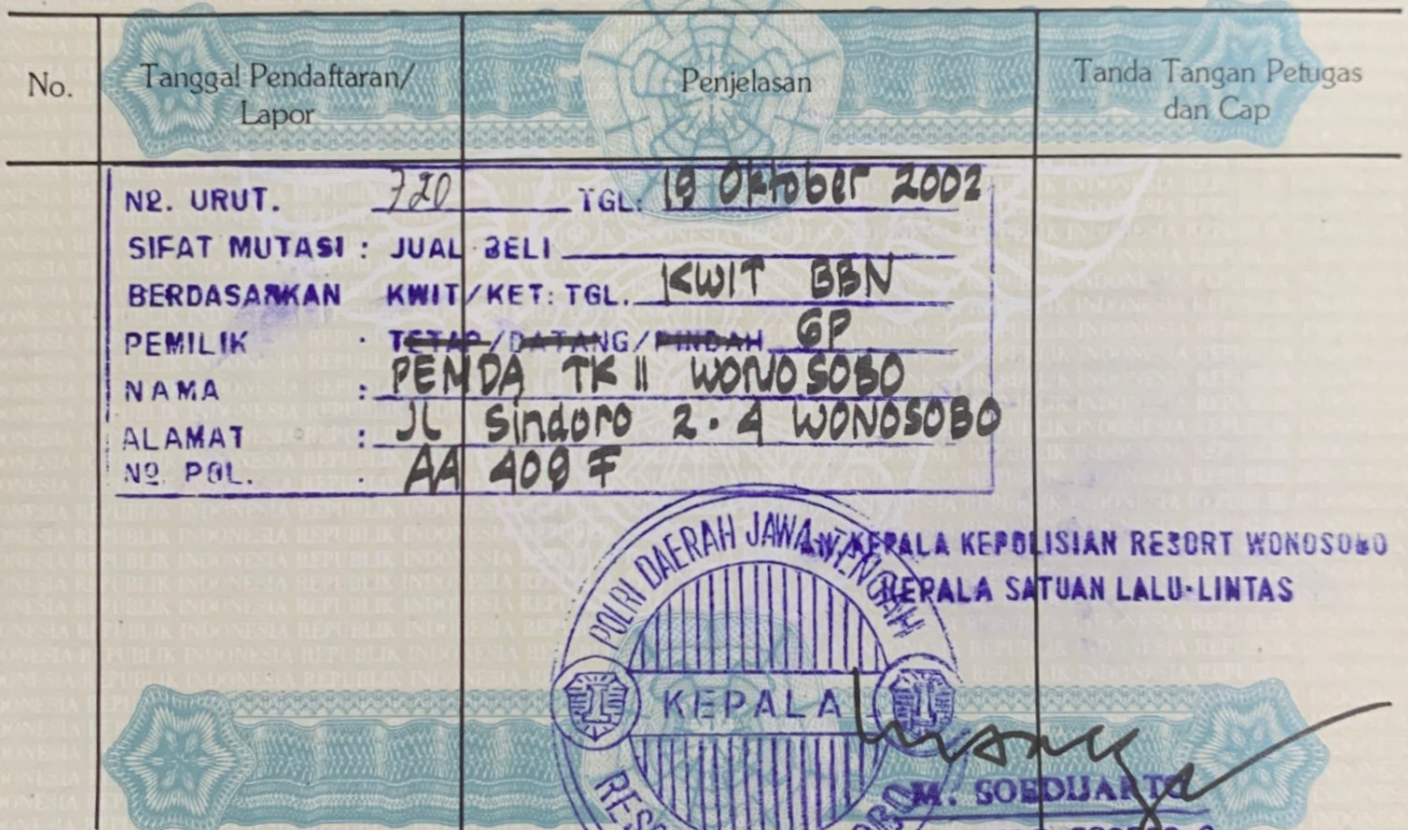 No.
Tanggal Pendaftaran/
Lapor
Penjelasan
Tanda Tangan Petugas
dan Cap
Nº. URUT. 720 TGL. 19 Oktober 2002
SIFAT MUTASI : JUAL BELI
BERDASARKAN KWIT/KET: TGL. KWIT BBN
PEMILIK : TETAP/DATANG/PINDAH GP
NAMA : PEMDA TK II WONOSOBO
ALAMAT : JL Sindoro 2.4 WONOSOBO
Nº. POL. : AA 409 F
POLRI DAERAH JAWA TENGAH
A.N. KEPALA KEPOLISIAN RESORT WONOSOBO
KEPALA SATUAN LALU-LINTAS
KEPALA
M. SOEDIJARTO